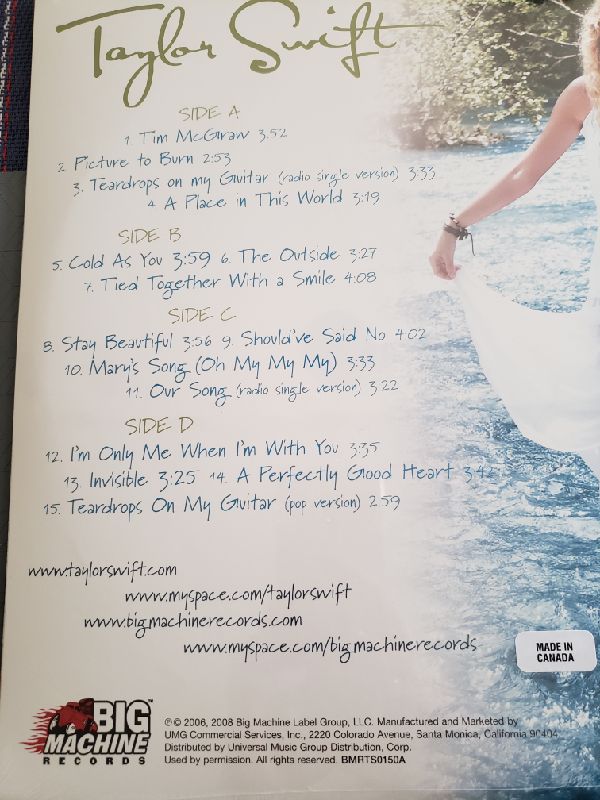 Taylor Swift
SIDE A
1. Tim McGraw 3:52
2. Picture to Burn 2:53
3. Teardrops on my Guitar (radio single version) 3:33
4. A Place in This World 3:19
SIDE B
5. Cold As You 3:59 6. The Outside 3:27
7. Tied Together With a Smile 4:08
SIDE C
8. Stay Beautiful 3:56 9. Should've Said No 4:02
10. Mary's Song (Oh My My My) 3:33
11. Our Song (radio single version) 3:22
SIDE D
12. I'm Only Me When I'm With You 3:35
13. Invisible 3:25 14. A Perfectly Good Heart 3:42
15. Teardrops On My Guitar (pop version) 2:59
www.taylorswift.com
www.myspace.com/taylorswift
www.bigmachinerecords.com
www.myspace.com/bigmachinerecords
MADE IN
CANADA
BIG
MACHINE
RECORDS
℗© 2006, 2008 Big Machine Label Group, LLC. Manufactured and Marketed by
UMG Commercial Services, Inc., 2220 Colorado Avenue, Santa Monica, California 90404
Distributed by Universal Music Group Distribution, Corp.
Used by permission. All rights reserved. BMRTS0150A